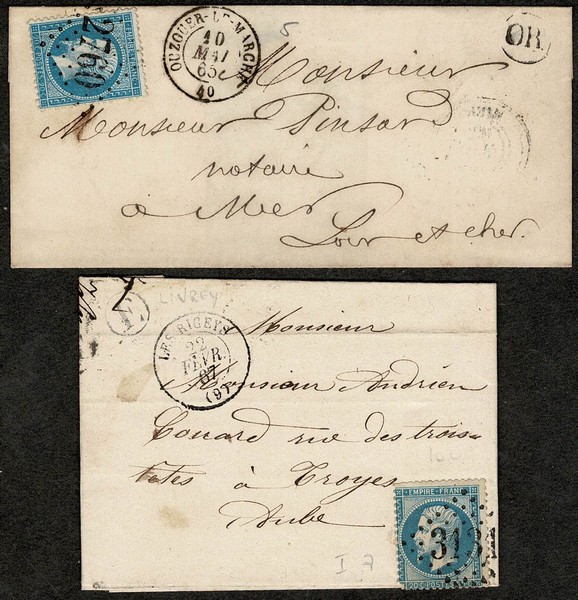 2760
OUZOUER-LE-MARCHÉ
10
MAI
65
40
5
OR
Monsieur
Monsieur Pinsard
notaire
à Mer
Loir et cher.
LIVREY
LES RICEYS
22
FEVR.
67
(9)
Monsieur
Monsieur Andrien
Couard rue des trois=
Têtes à Troyes
Aube
100
I 7
EMPIRE FRANC
3131
20 C POST